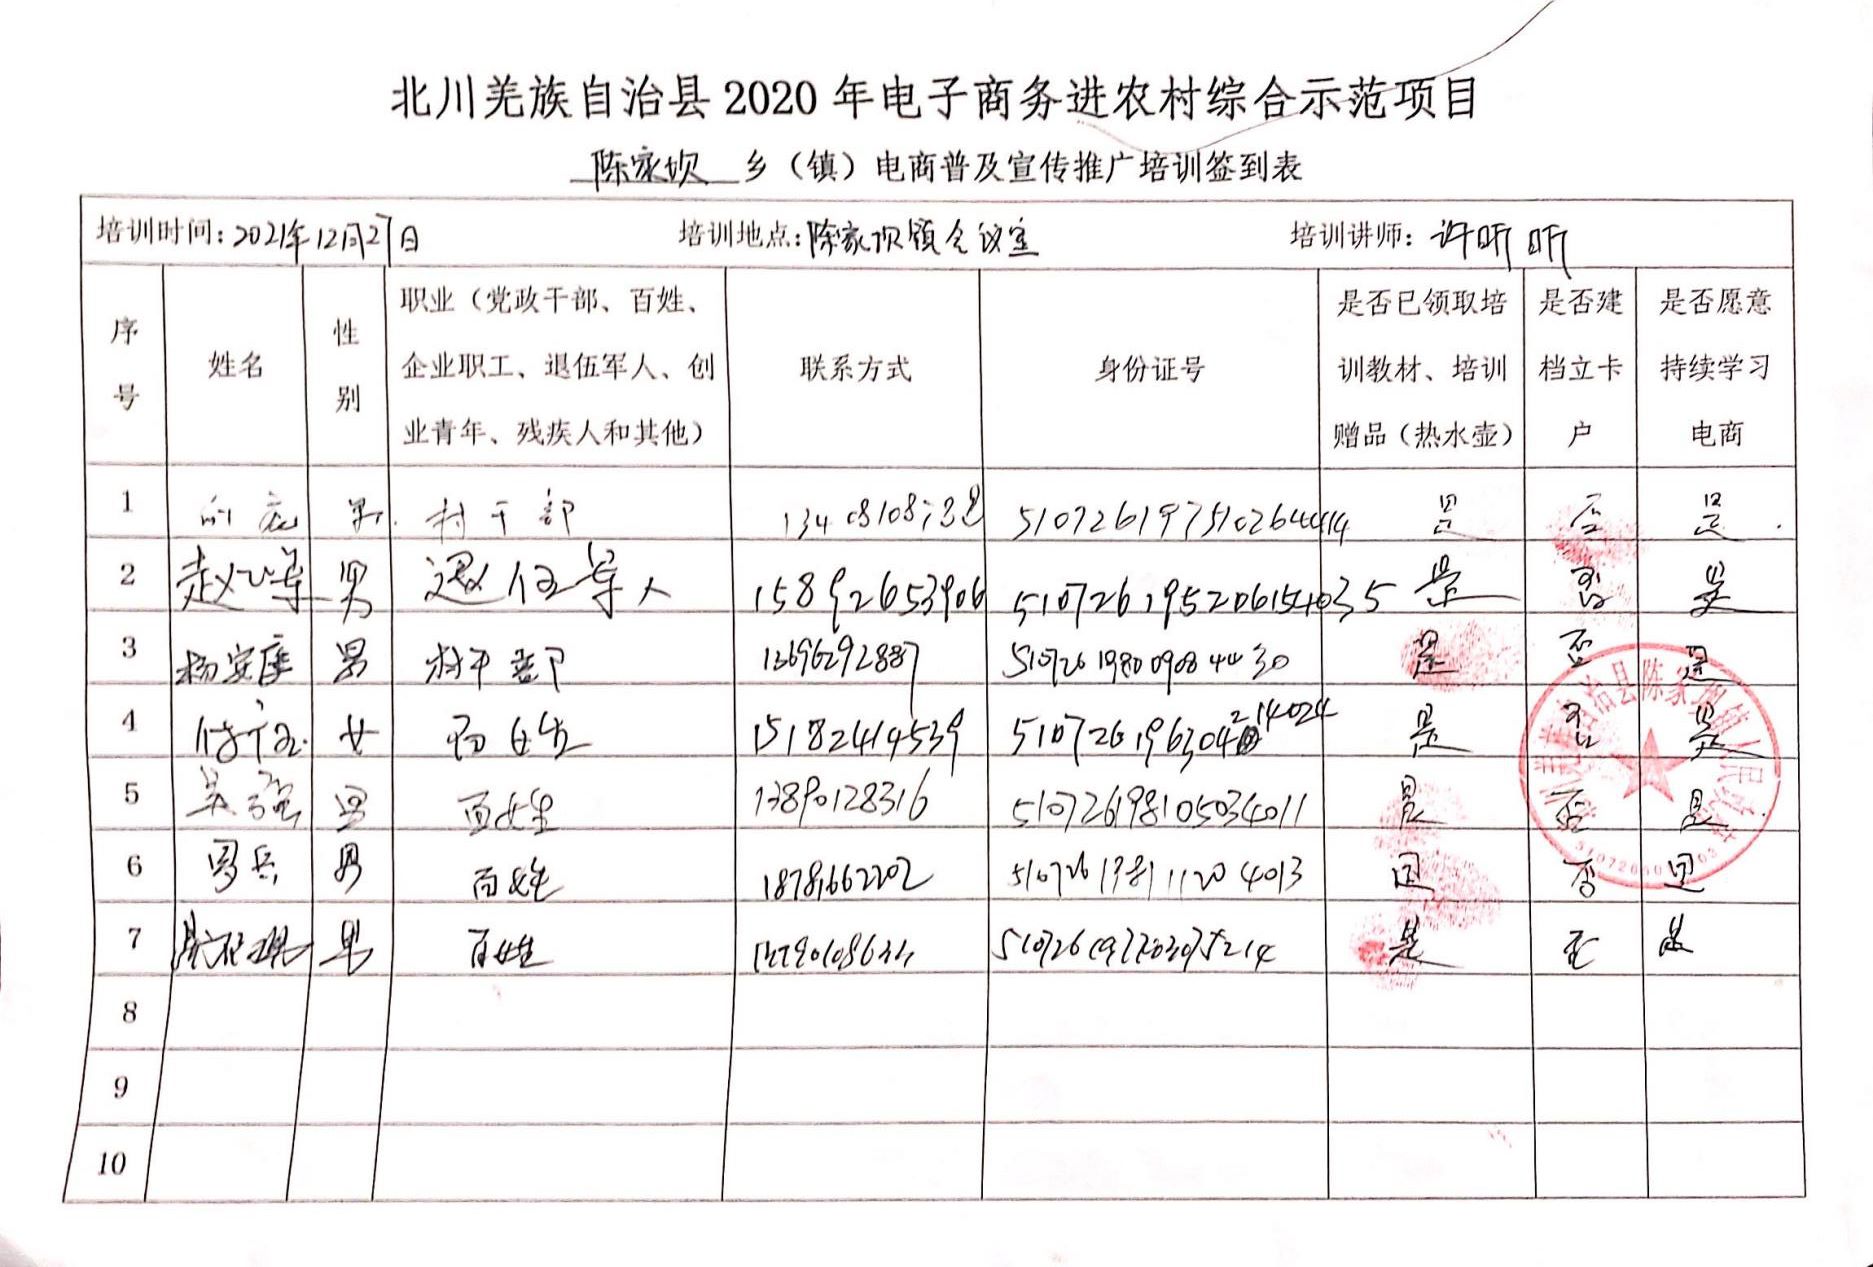 北川羌族自治县2020年电子商务进农村综合示范项目
陈家坝 乡（镇）电商普及宣传推广培训签到表
培训时间：2021年12月27日 培训地点：陈家坝镇会议室 培训讲师：许昕昕
序号 姓名 性别 职业（党政干部、百姓、企业职工、退伍军人、创业青年、残疾人和其他） 联系方式 身份证号 是否已领取培训教材、培训赠品（热水壶） 是否建档立卡户 是否愿意持续学习电商
1 男 村干部 510726197510264414 是 否 是
2 男 退伍军人 15892653906 510726195206154035 是 否 是
3 杨安康 男 村干部 13696292887 510726198009084430 是 否 是
4 女 百姓 15182414539 是 否 是
5 吴强 男 百姓 13890128316 510726198105034011 是 否 是
6 罗兵 男 百姓 18781662202 510726198111204013 是 否 是
7 男 百姓 是 否 是
8
9
10